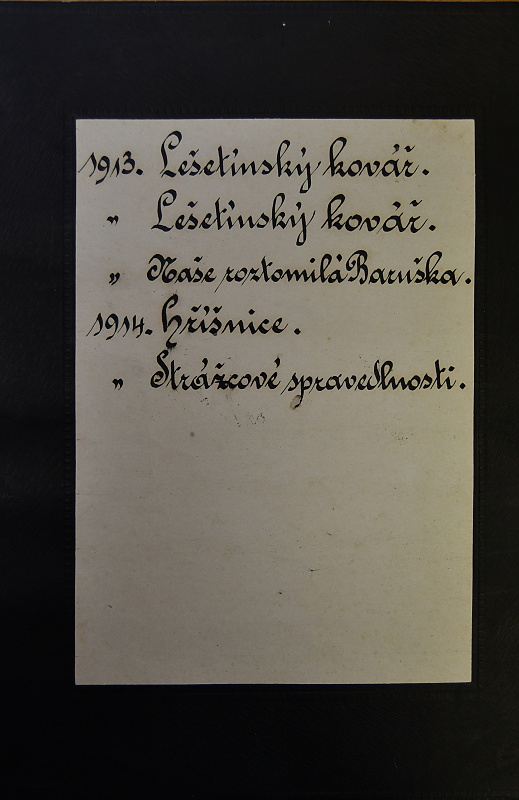 1913. Lešetínský kovář.
„ Lešetínský kovář.
„ Naše roztomilá Baruška.
1914. Hříšnice.
„ Strážcové spravedlnosti.